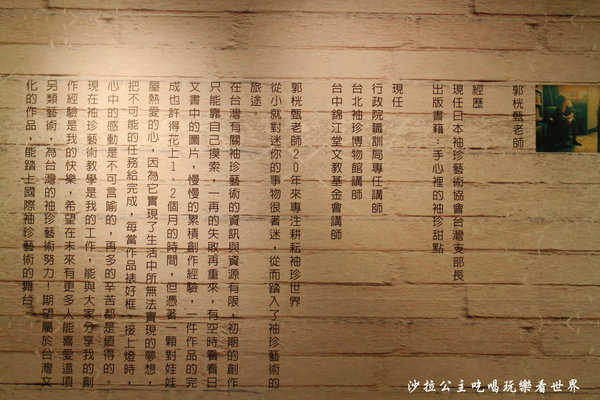 郭桄甄老師
經歷
現任日本袖珍藝術協會台灣支部長
出版書籍:手心裡的袖珍甜點
現任
行政院職訓局專任講師
台北袖珍博物館講師
台中錦江堂文教基金會講師
郭桄甄老師20年來專注耕耘袖珍世界
從小就對迷你的事物很著迷,從而踏入了袖珍藝術的
旅途。
在台灣有關袖珍藝術的資訊與資源有限,初期的創作
只能靠自己摸索,一再的失敗再重來,有空時看看日
文書中的圖片,慢慢的累積創作經驗,一件作品的完
成也許得花上1、2個月的時間,但憑著一顆對娃娃
屋熱愛的心,因為它實現了生活中所無法實現的夢想,
把不可能的任務給完成,每當作品裱好框、接上燈時,
心中的感動是不可言喻的,再多的辛苦都是值得的。
現在袖珍藝術教學是我的工作,能與大家分享我的創
作經驗是我的快樂,希望在未來有更多人能喜愛這項
另類藝術,為台灣的袖珍藝術努力!期望屬於台灣文
化的作品,能踏上國際袖珍藝術的舞台。
沙拉公主吃喝玩樂看世界